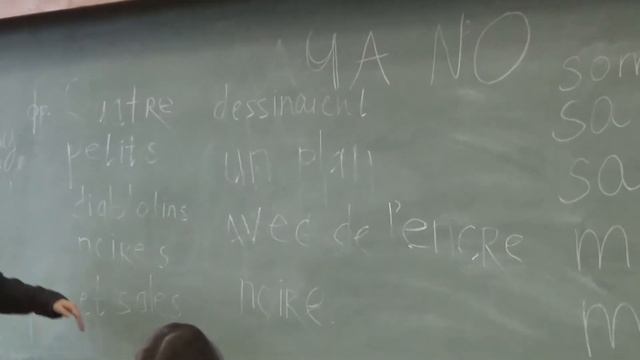 YA NO
petits
diablotins
noires
et sales
dessinaient
un plan
avec de l'encre
noire.
som
sa
sa
m
m